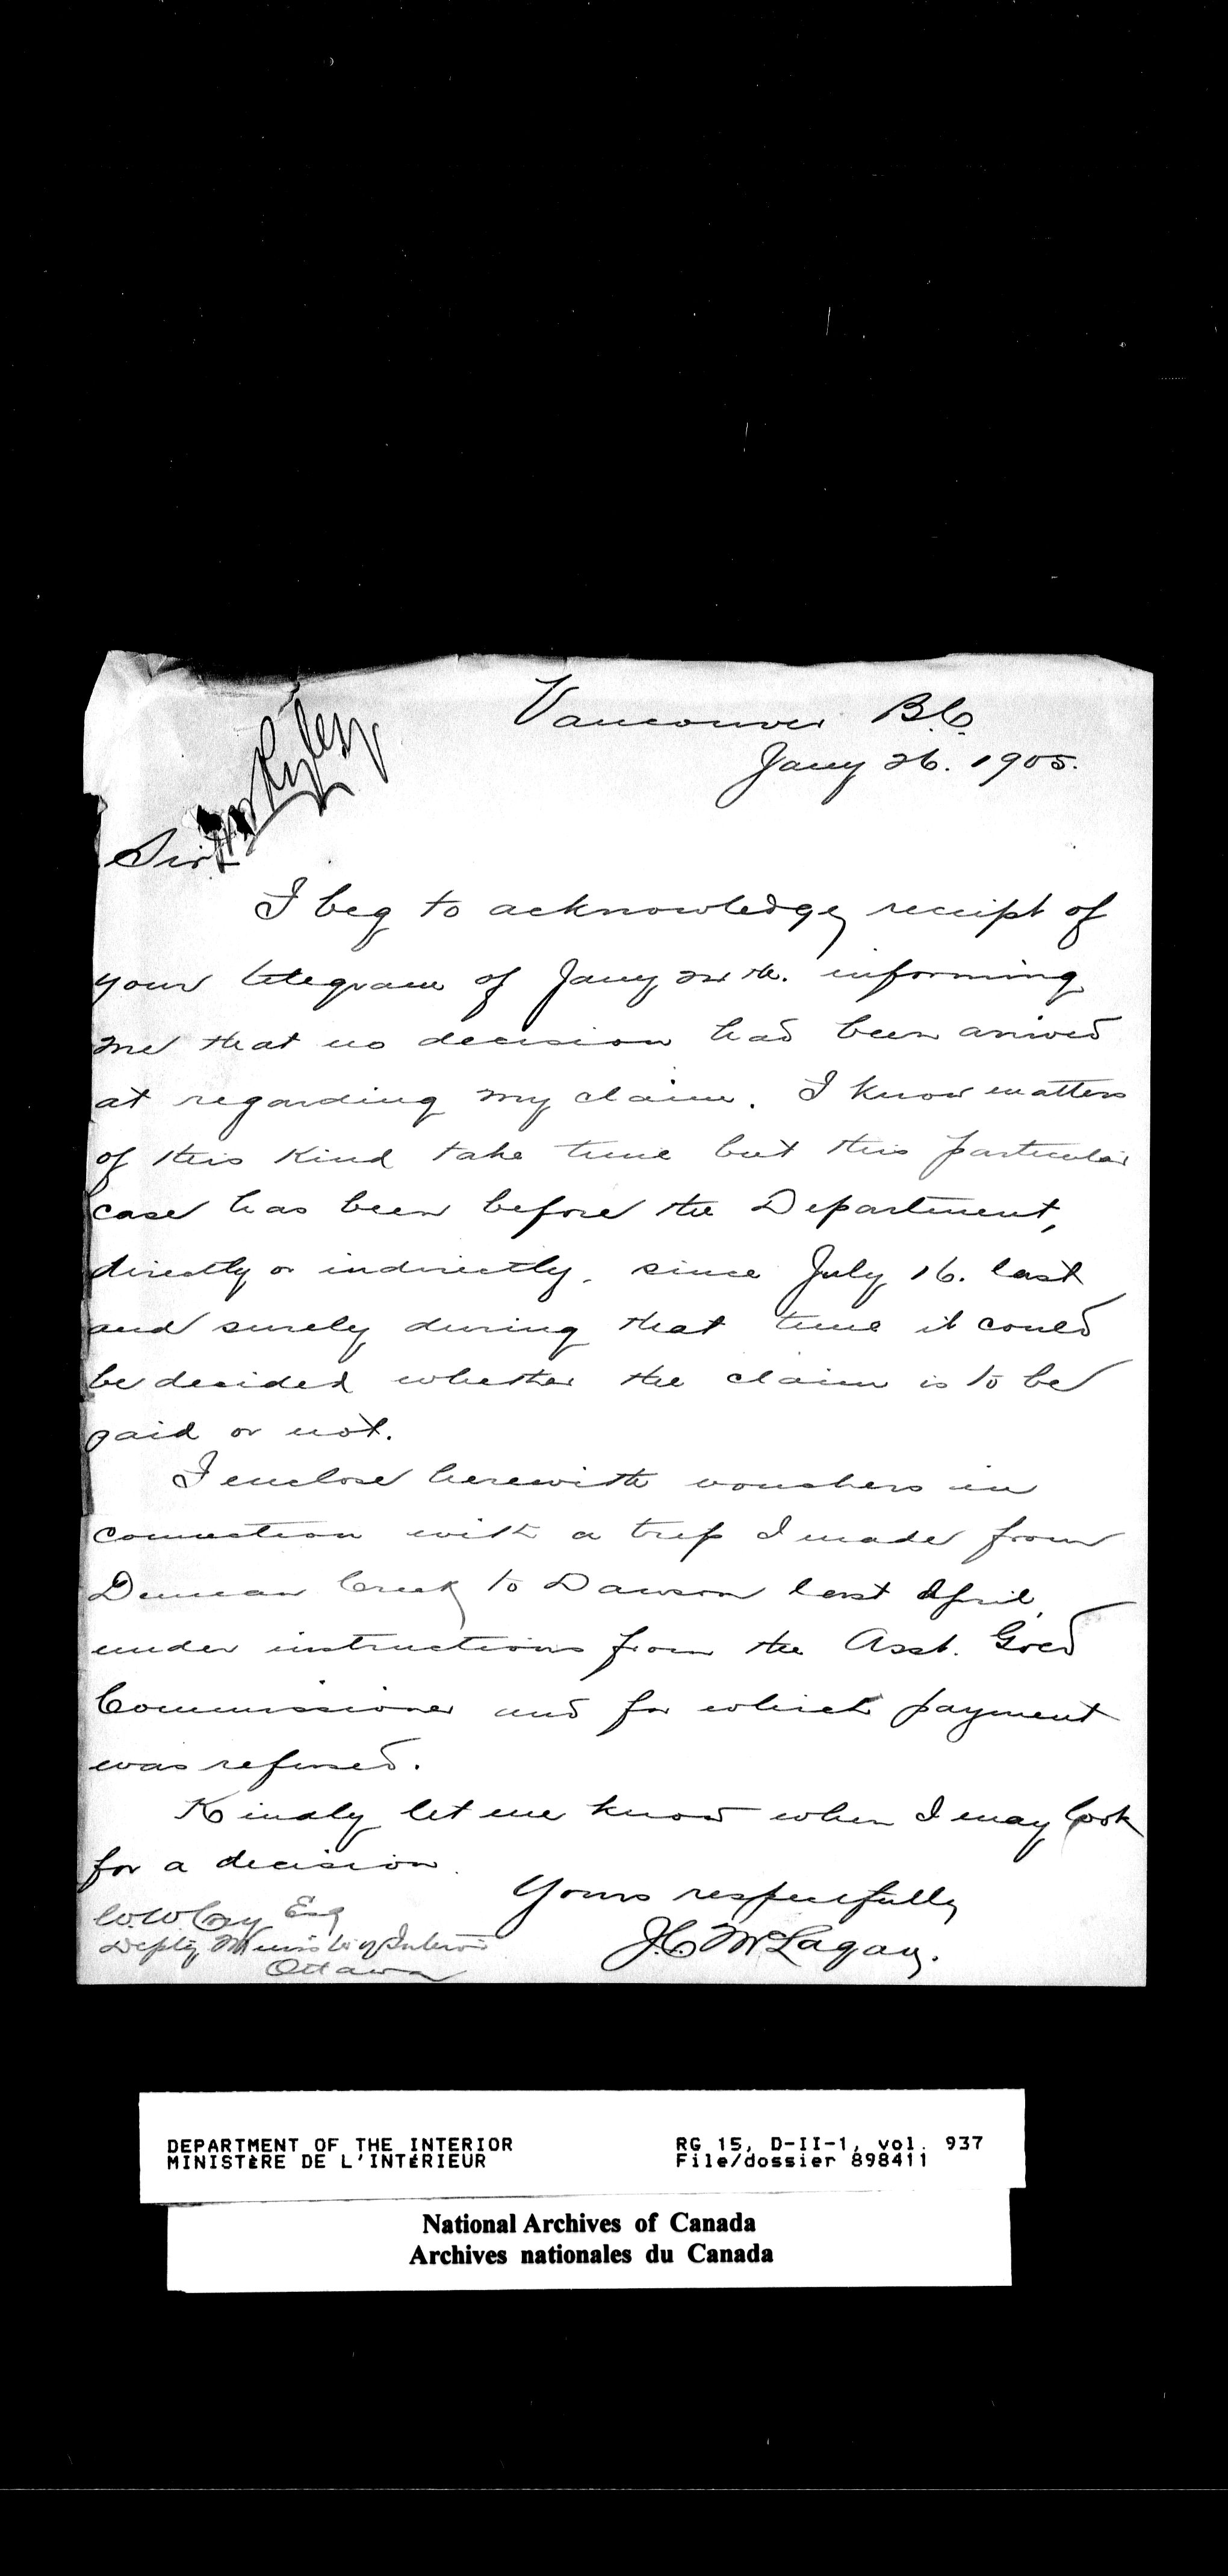 Vancouver B.C.
Jany 26. 1905.
Mr Ryley
Sir
I beg to acknowledge receipt of
your telegram of Jany informing
me that no decision had been arrived
at regarding my claim. I know matters
of this kind take time but this particular
case has been before the Department,
directly or indirectly, since July 16. last
and surely during that time it could
be decided whether the claim is to be
paid or not.
I enclose herewith vouchers in
connection with a trip I made from
Duncan Creek to Dawson last April,
under instructions from the Asst. Gold
Commissioner and for which payment
was refused.
Kindly let me know when I may look
for a decision.
Yours respectfully
J.C. McLagan.
W.W. Cory Esq
Depty Minister of Interior
Ottawa
DEPARTMENT OF THE INTERIOR RG 15, D-II-1, vol. 937
MINISTÈRE DE L'INTÉRIEUR File/dossier 898411
National Archives of Canada
Archives nationales du Canada